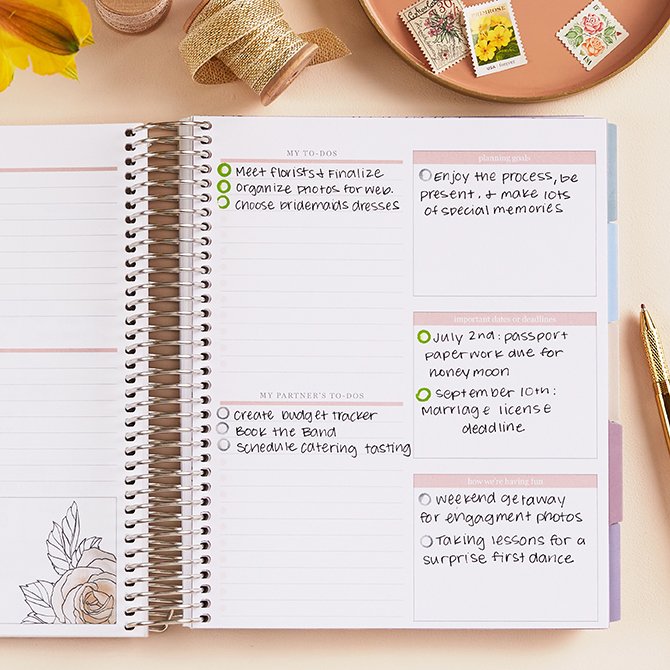 PRIMROSE
30
USA
forever
MY TO-DOS
Meet florists & Finalize
Organize photos for web.
Choose bridemaids dresses
MY PARTNER'S TO-DOS
Create budget tracker
Book the Band
Schedule catering tasting
planning goals
Enjoy the process, be
present. & make lots
of special memories
important dates or deadlines
July 2nd: passport
paperwork due for
honeymoon
September 10th:
Marriage license
deadline
how we're having fun
Weekend getaway
for engagment photos
Taking lessons for a
surprise first dance